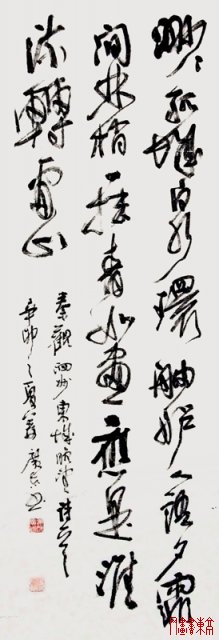 渺々孤城白水環舳艫人語夕霏
間林梢一抹青如畫應是淮
流轉處山
秦觀泗州東城晚望詩一首
辛卯之夏